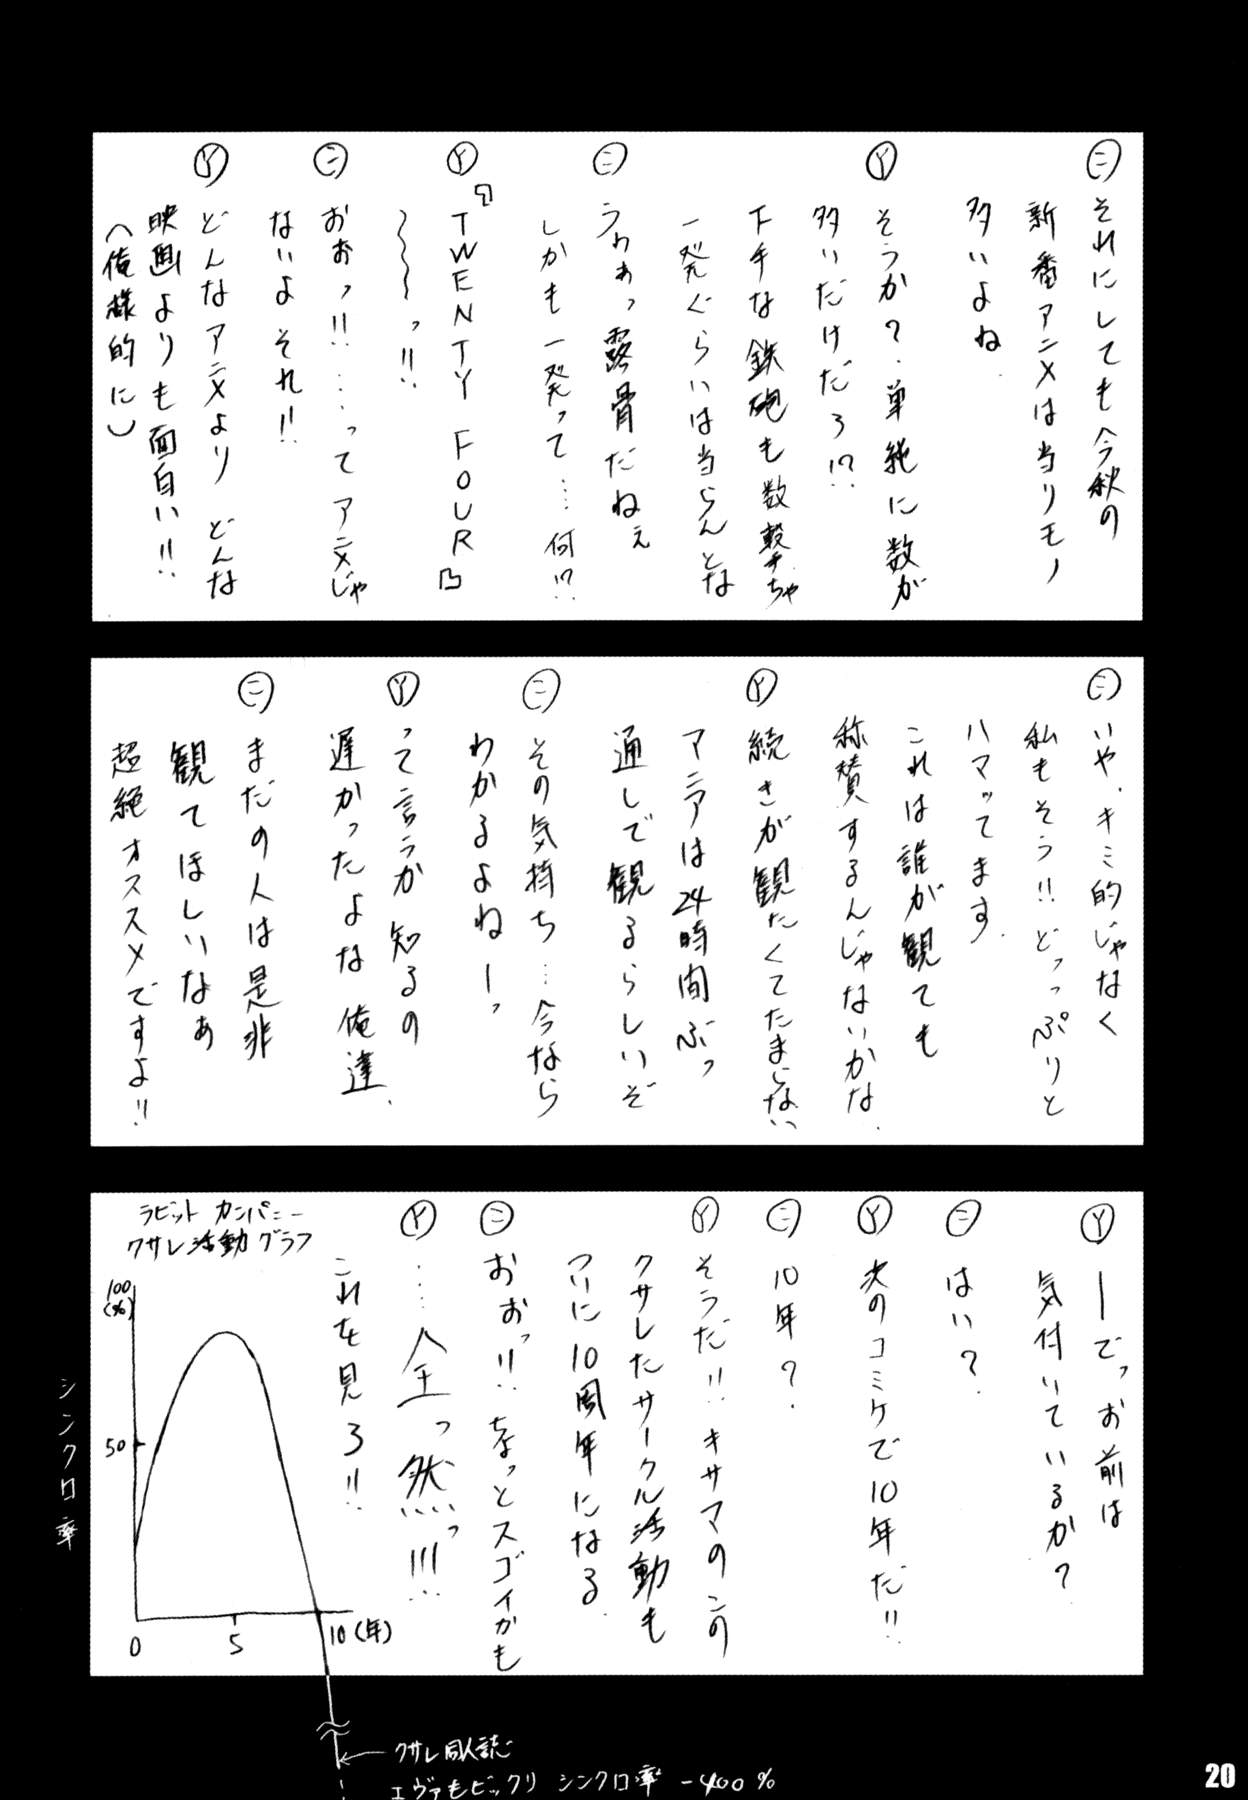 ㊁それにしても今秋の
新番アニメは当りモノ
多いよね.
Ⓨそうか?単純に数が
多いだけだろ!?
下手な鉄砲も数撃ちゃ
一発ぐらいは当らんとな
㊁うわぁっ露骨だねぇ
しかも一発って…何!?
Ⓨ『TWENTY FOUR』
~~~っ!!
㊁おぉっ!!…ってアニメじゃ
ないよそれ!!
Ⓨどんなアニメより どんな
映画よりも面白い!!
(俺様的に)
㊁いや、キミ的じゃなく
私もそう!!どっっぷりと
ハマッてます.
これは誰が観ても
称賛するんじゃないかな.
Ⓨ続きが観たくてたまらない
マニアは24時間ぶっ
通しで観るらしいぞ
㊁その気持ち…今なら
わかるよねーっ
Ⓨって言うか知るの
遅かったよな俺達.
㊁まだの人は是非
観てほしいなぁ
超絶オススメですよ!!
Ⓨーでっお前は
気付いているか?
㊁はい?
Ⓨ次のコミケで10年だ!!
㊁10年?
Ⓨそうだ!!キサマのこの
クサレたサークル活動も
ついに10周年になる
㊁おぉっ!!ちょっとスゴイかも
Ⓨ……全っ然っ!!!
これを見ろ!!
ラビット カンパニー
クサレ活動グラフ
100
(%)
50
0
5
10(年)
シンクロ率
←クサレ同人誌
エヴァもビックリ シンクロ率 -400%
20